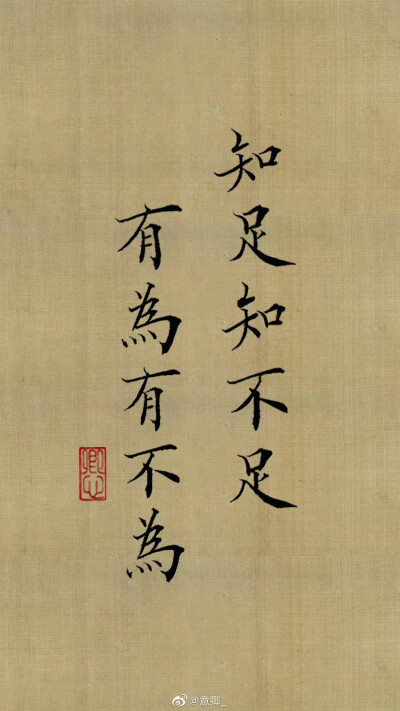 知足知不足
有為有不為
卿心
@意卿_